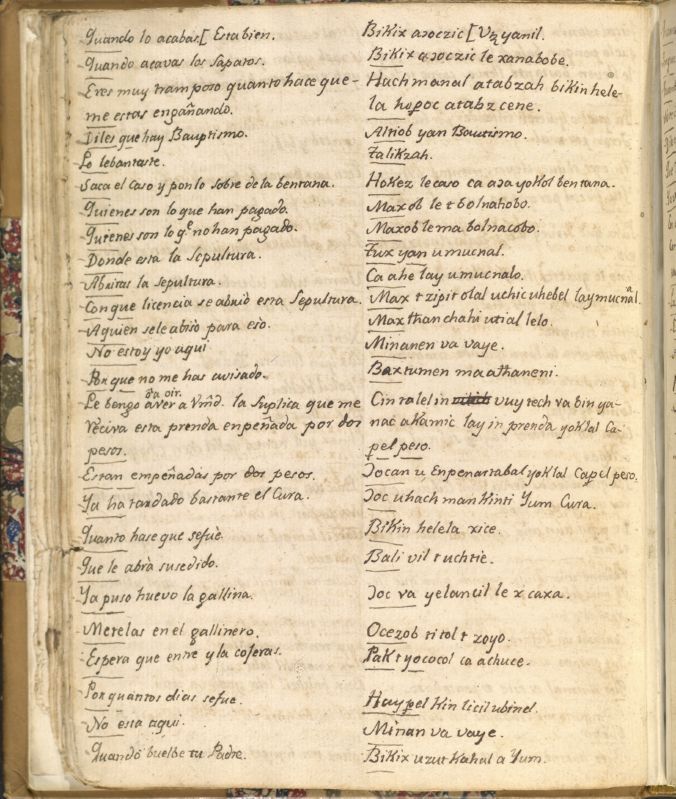 Quando lo acabas [ Esta bien.
Bikix aɔoczic [ Uꜩ yanil.
Quando acavas los sapatos.
Bikix aɔoczic le xanabobe.
Eres muy tramposo quanto hace que
Hach manal atabzah bikin hele-
me estas engañando.
la hopoc atabzcene.
Diles que hay Bauptismo.
Alriob yan Bautismo.
Lo lebantaste.
Talikzah.
Saca el Caso y ponlo sobre de la bentana.
Hokez le caso ca aɔa yokol bentana.
Quienes son lo que han pagado.
Maxob le t bolnahobo.
Quienes son lo q.e no han pagado.
Maxob le ma bolnacobo.
Donde esta la Sepultura.
Tux yan u mucnal.
Abrirás la sepultura.
Ca ahe lay u mucnalo.
Con que licencia se abrió esta Sepultura.
Max t zipit olal uchic uhebel lay mucnal.
A quien se le abrió para eso.
Max than chahi utial lelo.
No estoy yo aqui
Minanen va vaye.
Por que no me has avisado.
Baxtumen ma athaneni.
da oir.
Le bengo aver a Vmd. la suplica que me
Cin talel in vuy tech va bin ya-
Reciva esta prenda empeñada por dos
nac akamic lay in prenda yoklal Ca-
pesos.
pel peso.
Estan empeñadas por dos pesos.
ɔocan u Enpenartabal yoklal Capel peso.
Ya ha tardado bastante el Cura.
ɔoc u hach man kinti Yum Cura.
Quanto hase que se fué.
Bikin helela xice.
Que le abrá susedido.
Bali vil t uchtie.
Ya puso huevo la gallina.
ɔoc va yelancil le x caxa.
Metelas en el gallinero.
Ocezob ti tolt zoyo.
Espera que entre y la cojeras.
Pak t yococol ca achuce.
Por quantos dias se fue.
Haypel kin licil ubinel.
No esta aqui.
Minan va vaye.
Quando buelbe tu Padre.
Bikix uzut kahal a Yum.